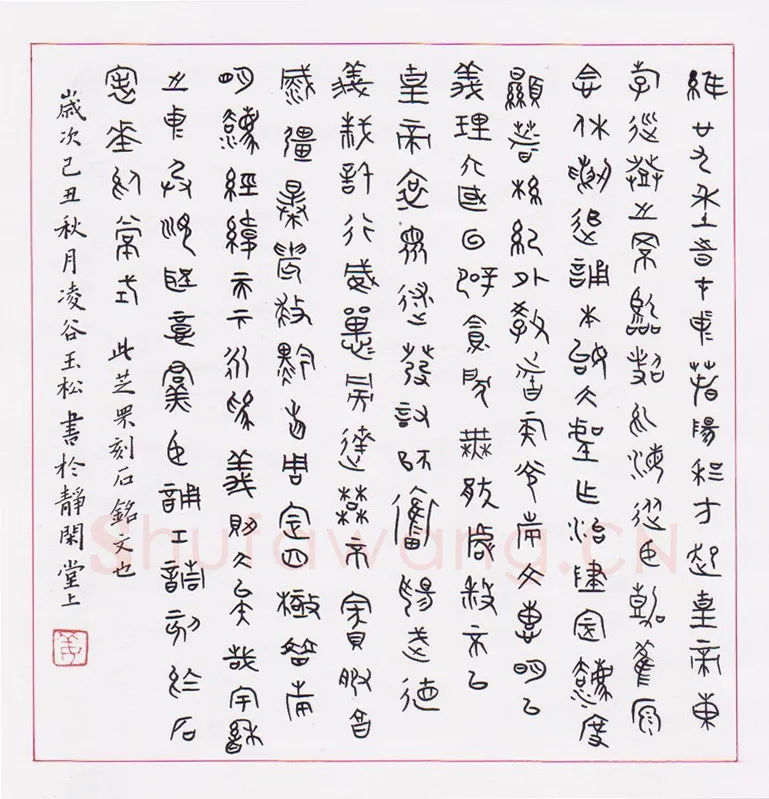 維廿九年時在中春陽和方起皇帝東
游巡登之罘臨照于海從臣嘉觀原
念休烈追誦本始大聖作治建定灋度
顯箸綱紀外教諸侯光施文惠明以
義理六國回辟貪戾無厭虐殺不已
皇帝哀眾遂發討師奮揚武德
義誅信行威燀旁達莫不賓服烹
滅彊暴振救黔首周定四極普施
明灋經緯天下永為義則大矣哉宇縣
之中承順聖意群臣誦工請刻於石
表垂於常式 此芝罘刻石銘文也
歲次己丑秋月凌谷玉松書於靜閑堂上
Shufawang.CN